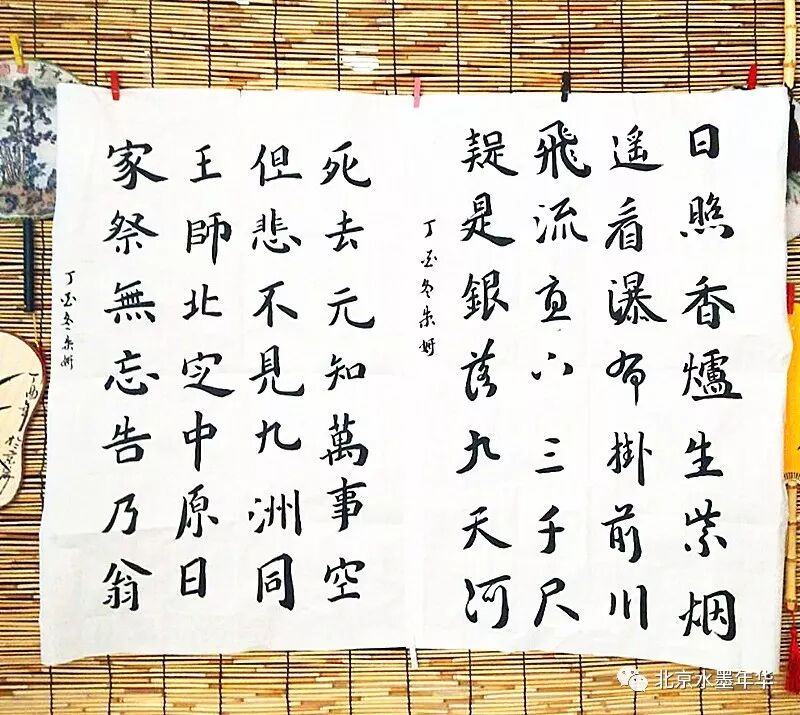 日照香爐生紫烟
遥看瀑布掛前川
飛流直下三千尺
疑是銀落九天河
丁酉冬朱妍
死去元知萬事空
但悲不見九洲同
王師北定中原日
家祭無忘告乃翁
丁酉冬朱妍
北京水墨年华